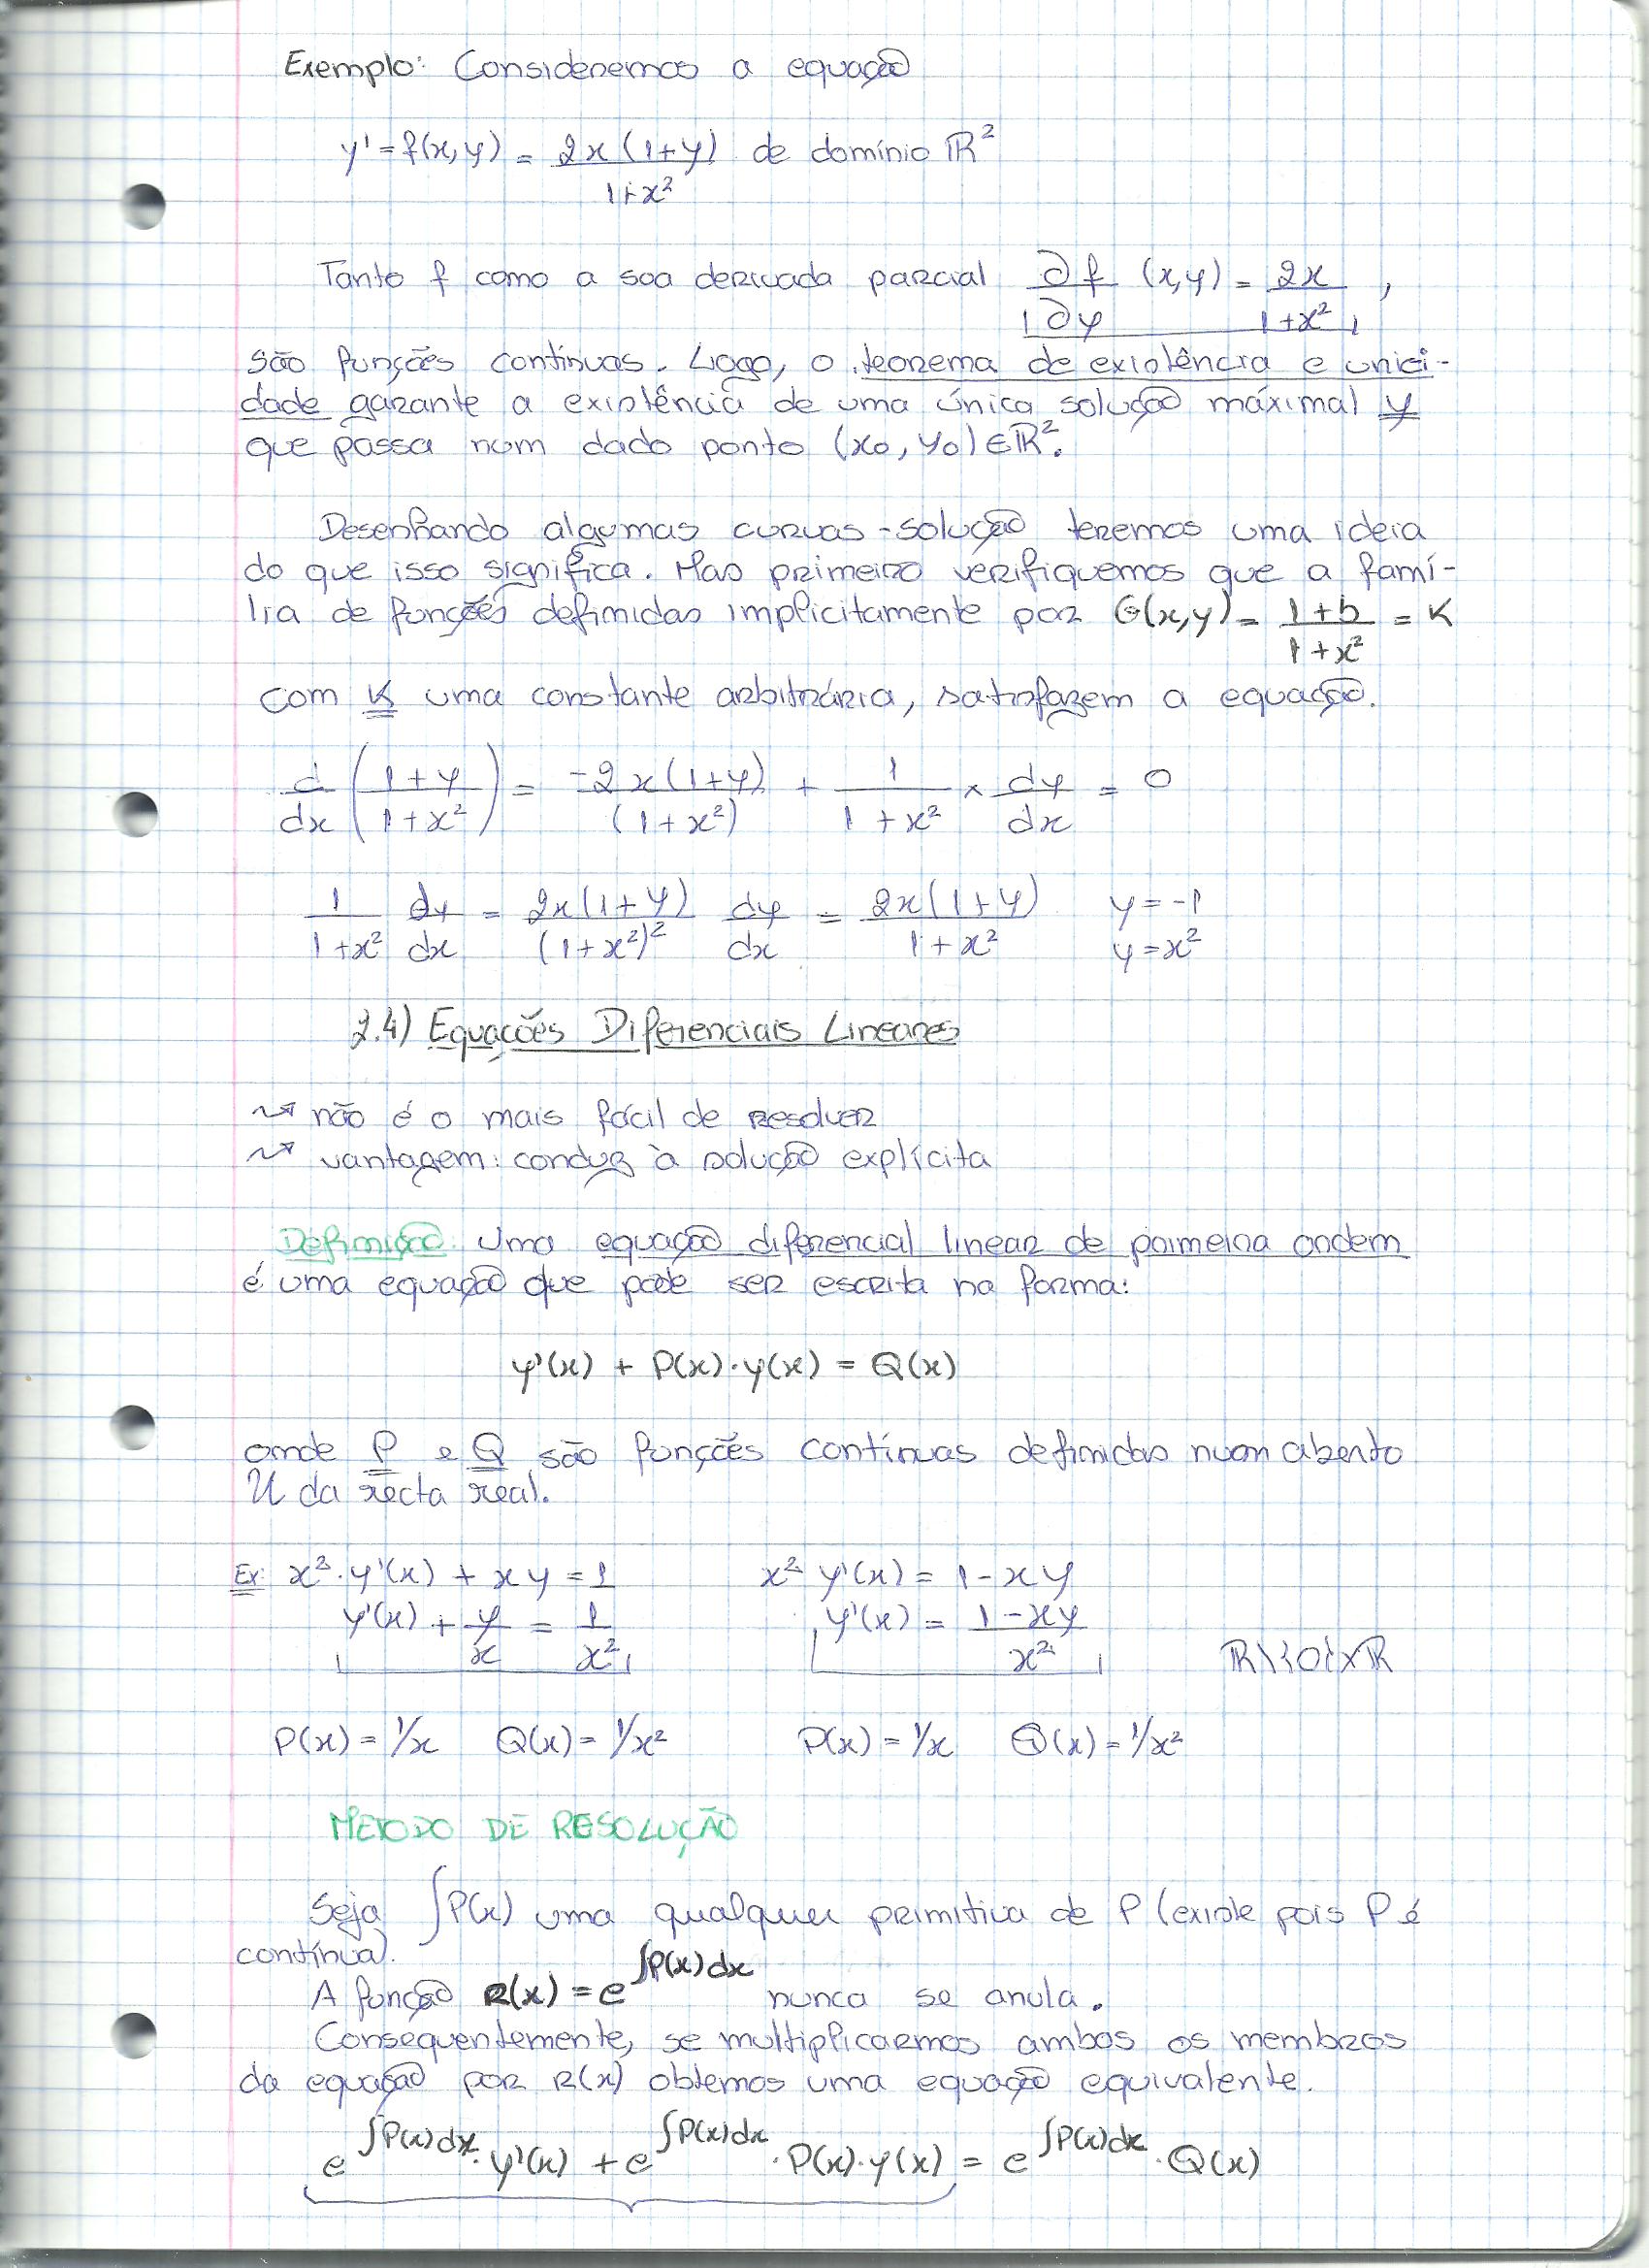 Exemplo: Consideremos a equação
y' = f(x,y) = 2x(1+y) / 1+x² de domínio ℝ²
Tanto f como a sua derivada parcial ∂f/∂y (x,y) = 2x / 1+x² ,
são funções contínuas. Logo, o teorema de existência e unici-
dade garante a existência de uma única solução máximal y
que passa num dado ponto (x0, y0) ∈ ℝ².
Desenhando algumas curvas-solução teremos uma ideia
do que isso significa. Mas primeiro verifiquemos que a famí-
lia de funções definidas implicitamente por G(x,y) = 1+b / 1+x² = K
com K uma constante arbitrária, satisfazem a equação.
d/dx (1+y / 1+x²) = -2x(1+y) / (1+x²) + 1 / 1+x² × dy/dx = 0
1 / 1+x² dy/dx = 2x(1+y) / (1+x²)² dy/dx = 2x(1+y) / 1+x² y = -1
y = x²
2.4) Equações Diferenciais Lineares
↝ não é o mais fácil de resolver
↝ vantagem: conduz à solução explícita
Definição: Uma equação diferencial linear de primeira ordem
é uma equação que pode ser escrita na forma:
y'(x) + P(x)·y(x) = Q(x)
onde P e Q são funções contínuas definidas num aberto
U da recta real.
Ex: x²·y'(x) + xy = 1 x² y'(x) = 1 - xy
y'(x) + y/x = 1/x² y'(x) = 1-xy / x² ℝ\{0}×ℝ
P(x) = 1/x Q(x) = 1/x² P(x) = 1/x Q(x) = 1/x²
METODO DE RESOLUÇÃO
Seja ∫P(x) uma qualquer primitiva de P (existe pois P é
contínua).
A função R(x) = e^∫P(x)dx nunca se anula.
Consequentemente, se multiplicarmos ambos os membros
da equação por R(x) obtemos uma equação equivalente.
e^∫P(x)dx · y'(x) + e^∫P(x)dx · P(x)·y(x) = e^∫P(x)dx · Q(x)